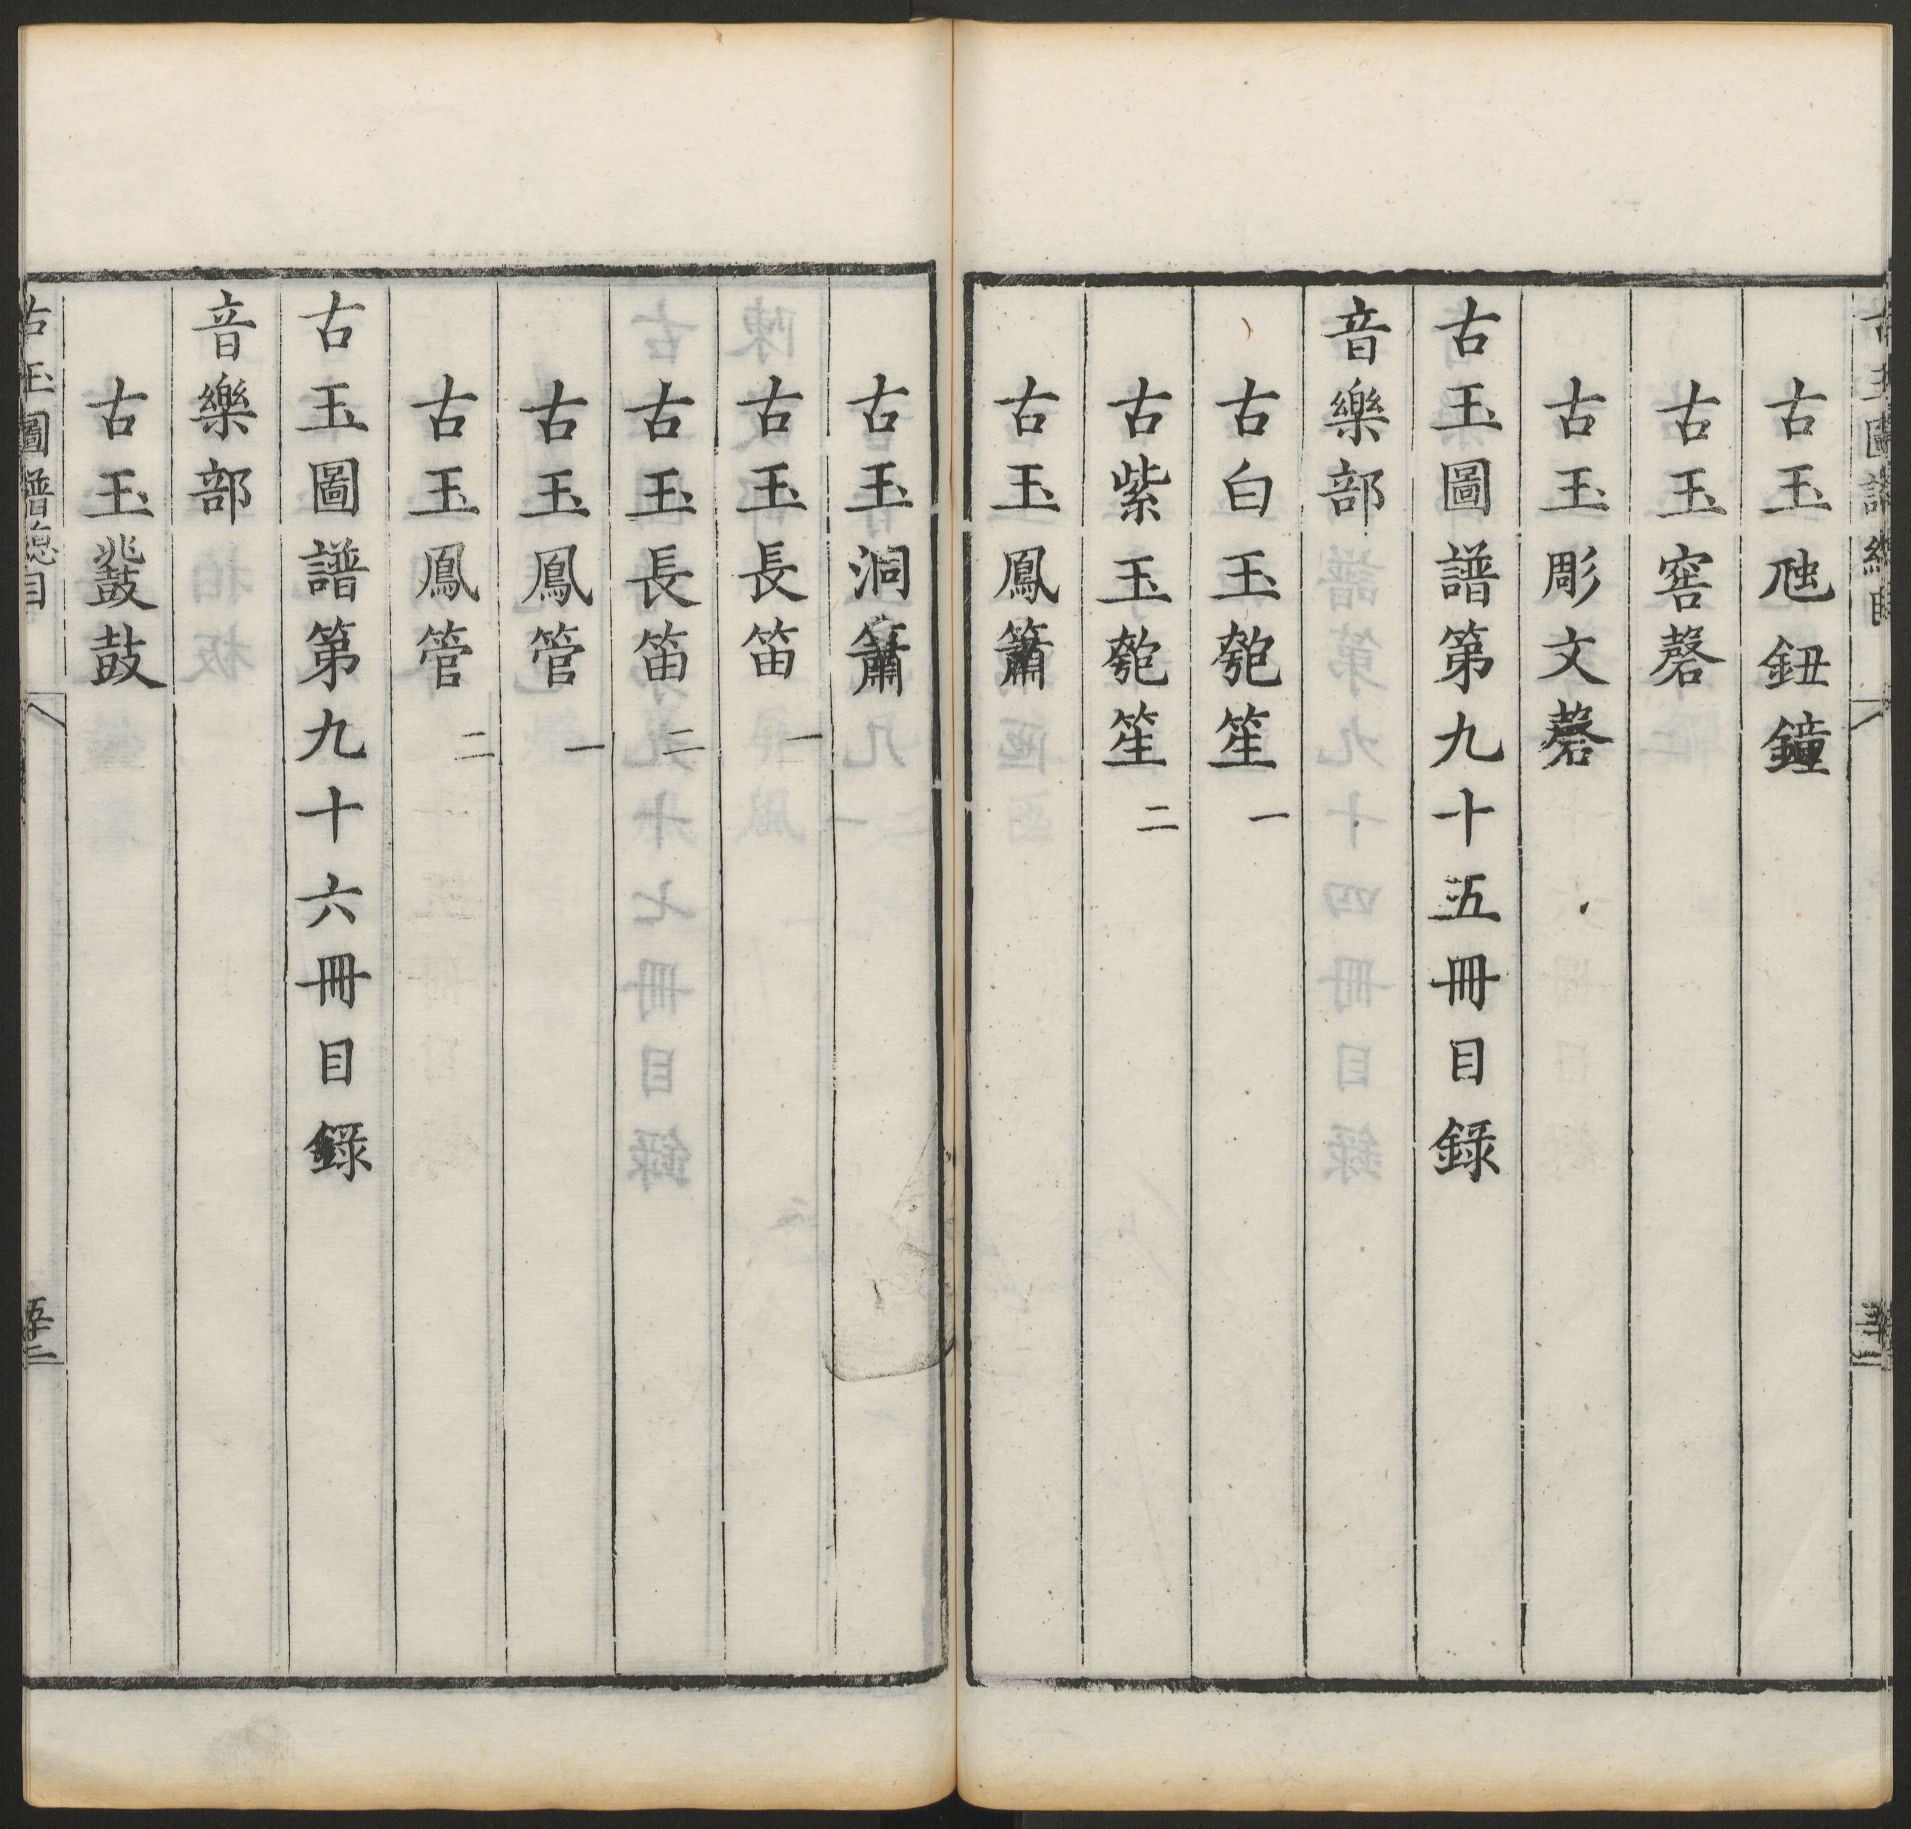 古玉圖譜總目
古玉虺鈕鐘
古玉窖磬
古玉彫文磬
古玉圖譜第九十五冊目錄
音樂部
古白玉匏笙 一
古紫玉匏笙 二
古玉鳳簫
古玉洞簫
古玉長笛 一
古玉長笛 二
古玉鳳管 一
古玉鳳管 二
古玉圖譜第九十六冊目錄
音樂部
古玉鼗鼓
古玉圖譜總目